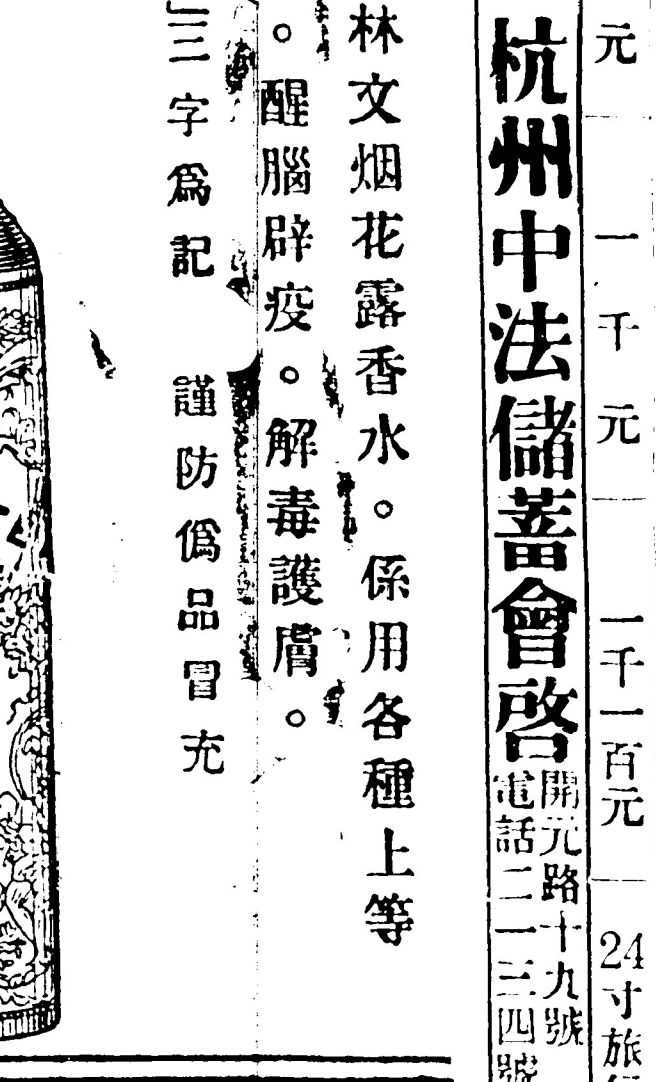 元　一千元　一千一百元　24寸旅
杭州中法儲蓄會啓
開元路十九號
電話二一三四號
林文烟花露香水。係用各種上等
。醒腦辟疫。解毒護膚。
」三字爲記　謹防僞品冒充